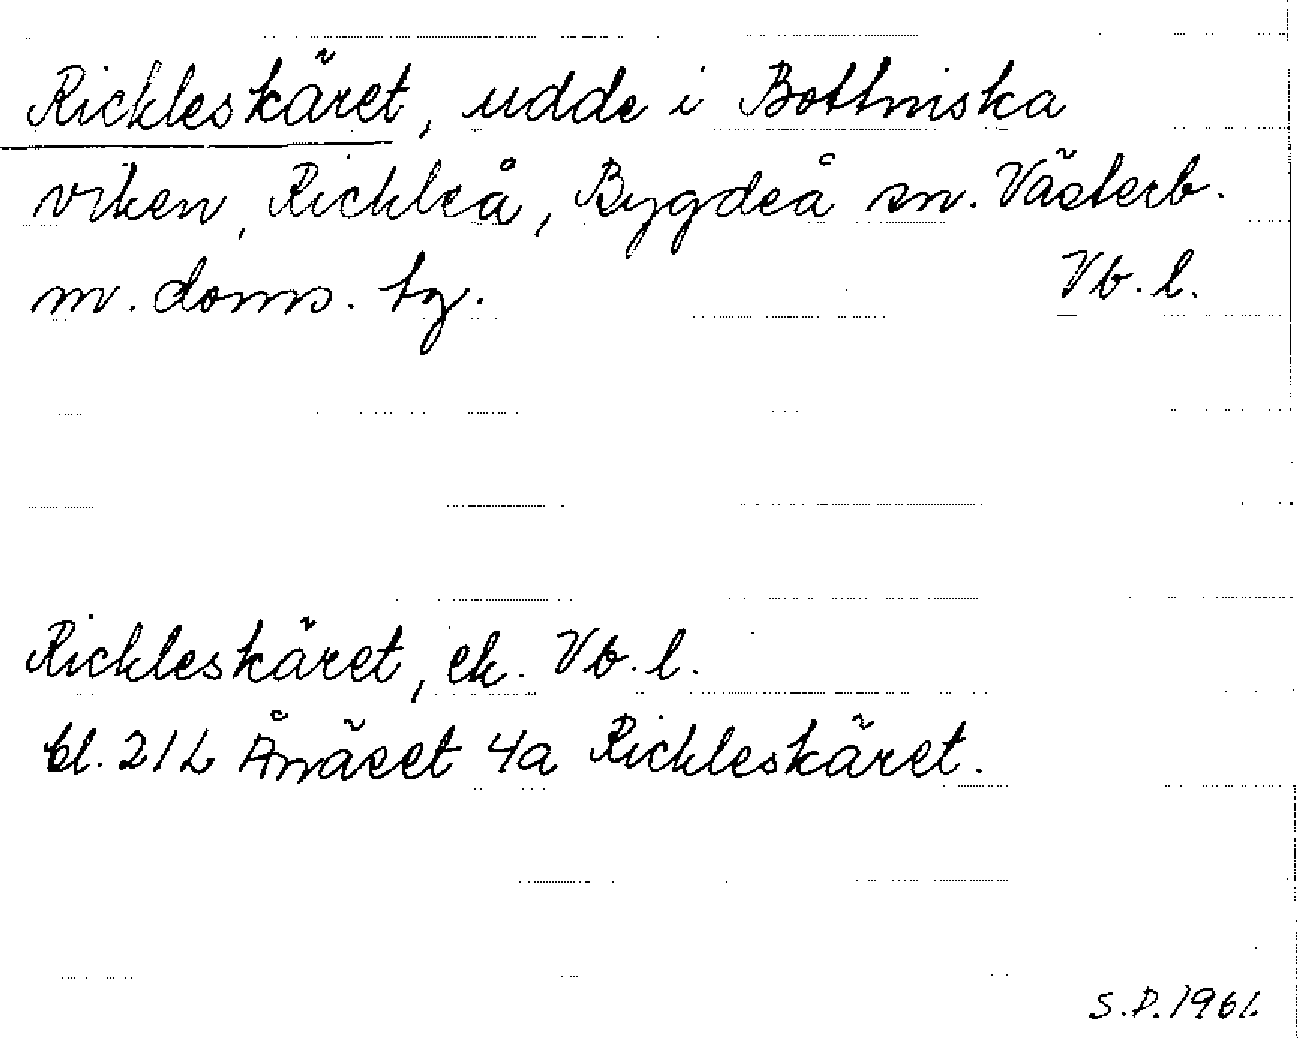 Rickleskäret, udde i Bottniska
viken, Rickleå, Bygdeå sn. Västerb.
m. doms. tg. Vb. l.
Rickleskäret, ek. Vb. l.
bl. 21 L Ånäset 4a Rickleskäret.
S.D. 1961.